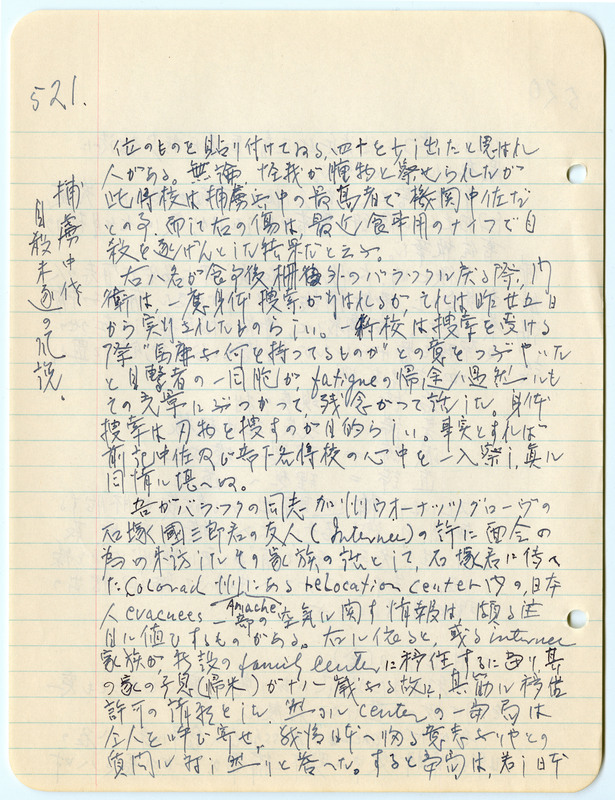 521.
捕虜中佐
自殺未遂の風説。
位のものを貼り付けてゐる、四十を七ツ出たと思はれ
人がある。無論 怪我が腫物と察せられたが
此将校は捕虜兵中の最高者で機関中佐だ
との事、而して右の傷は、最近食事用のナイフで自
殺を遂げんとした結果だと云ふ。
右八名が食事後柵外のバラックに戻る際、門
衛は、一應身体捜索が行はれるが、それは昨廿五日
から実行されたものらしい。一将校は捜索を受ける
際"馬鹿 何を持ってるものか"との意をつぶやいた
と目撃者の一同胞が、fatigueの帰途 過然にも
その光景にぶつかって、残念がって話した。身体
捜索は刃物を捜すのが目的らしい。事実とすれば
前記中佐及び部下各将校の心中を一入察し、真に
同情に堪へぬ。
吾がバラックの同志加州ウオーナッツグローヴの
石塚國三郎君の友人(Internee)の許に面会の
為め来訪したその家族の話として、石塚君に傳へ
たColorad州にあるrelocation center内の、日本
人evacuees Amache 一部の空気に関す情報は、頗る注
目に値ひするものがある。右に依ると、或るinternee
家族が新設のfamily centerに移住するに当り、其
の家の子息(帰米)が十八歳なる故に、其筋に移住
許可の請願をした。然るにcenterの一當局は
全人を呼び寄せ、戦後日本へ帰る意志ありやとの
質問に対し然りと答へた。すると當局は、若し日本